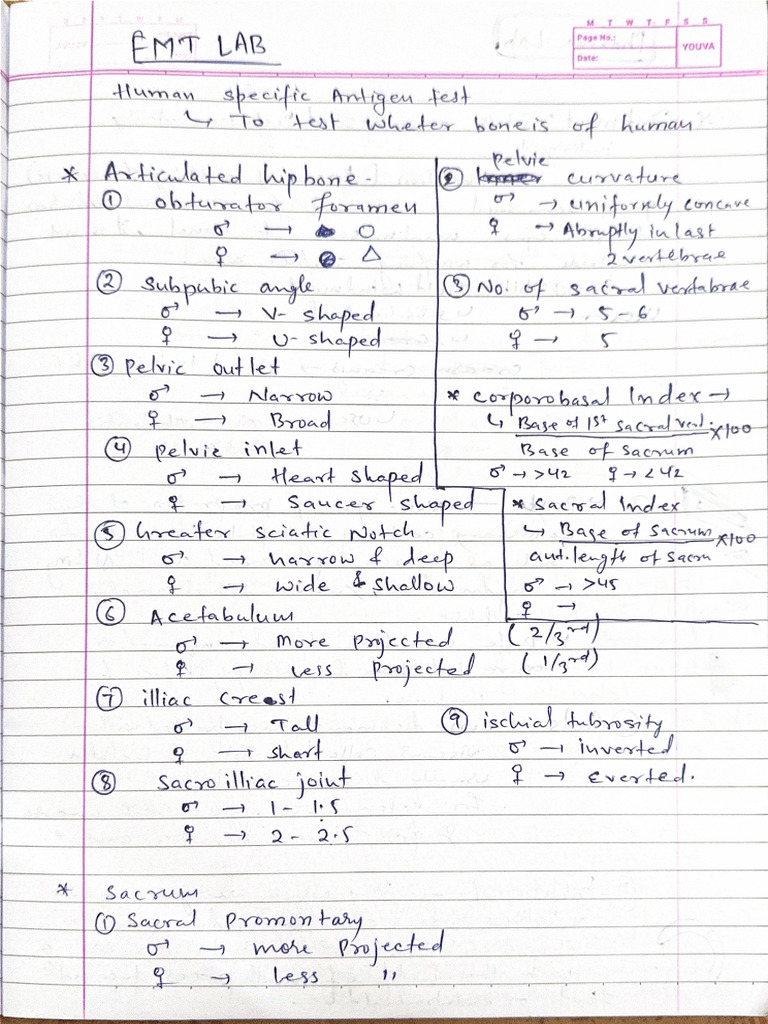 M T W T F S S
Page No.:
Date:
YOUVA
EMT LAB
Human specific Antigen test
↳ To test wheter bone is of human
* Articulated hipbone.
① obturator foramen
♂ → ○
♀ → △
② Subpubic angle
♂ → V- shaped
♀ → U- shaped
③ Pelvic outlet
♂ → Narrow
♀ → Broad
④ pelvic inlet
♂ → Heart shaped
♀ → Saucer shaped
⑤ Greater sciatic Notch.
♂ → narrow & deep
♀ → wide & shallow
⑥ Acetabulum
♂ → more projected (2/3rd)
♀ → Less projected (1/3rd)
⑦ illiac creast
♂ → Tall
♀ → short
⑧ Sacroilliac joint
♂ → 1 - 1.5
♀ → 2 - 2.5
⑨ ischial tubrosity
♂ → inverted
♀ → Everted.
* Sacrum
① Sacral Promontary
♂ → more Projected
♀ → Less "
② pelvic curvature
♂ → uniformly concave
♀ → Abruptly in last
2 vertebrae
③ No. of sacral vertabrae
♂ → 5 - 6
♀ → 5
* Corporobasal Index →
↳ Base of 1st sacral vert. ×100
Base of Sacrum
♂ → >42 ♀ → <42
* Sacral Index
↳ Base of sacrum ×100
ant. length of sacru
♂ → >45
♀ →